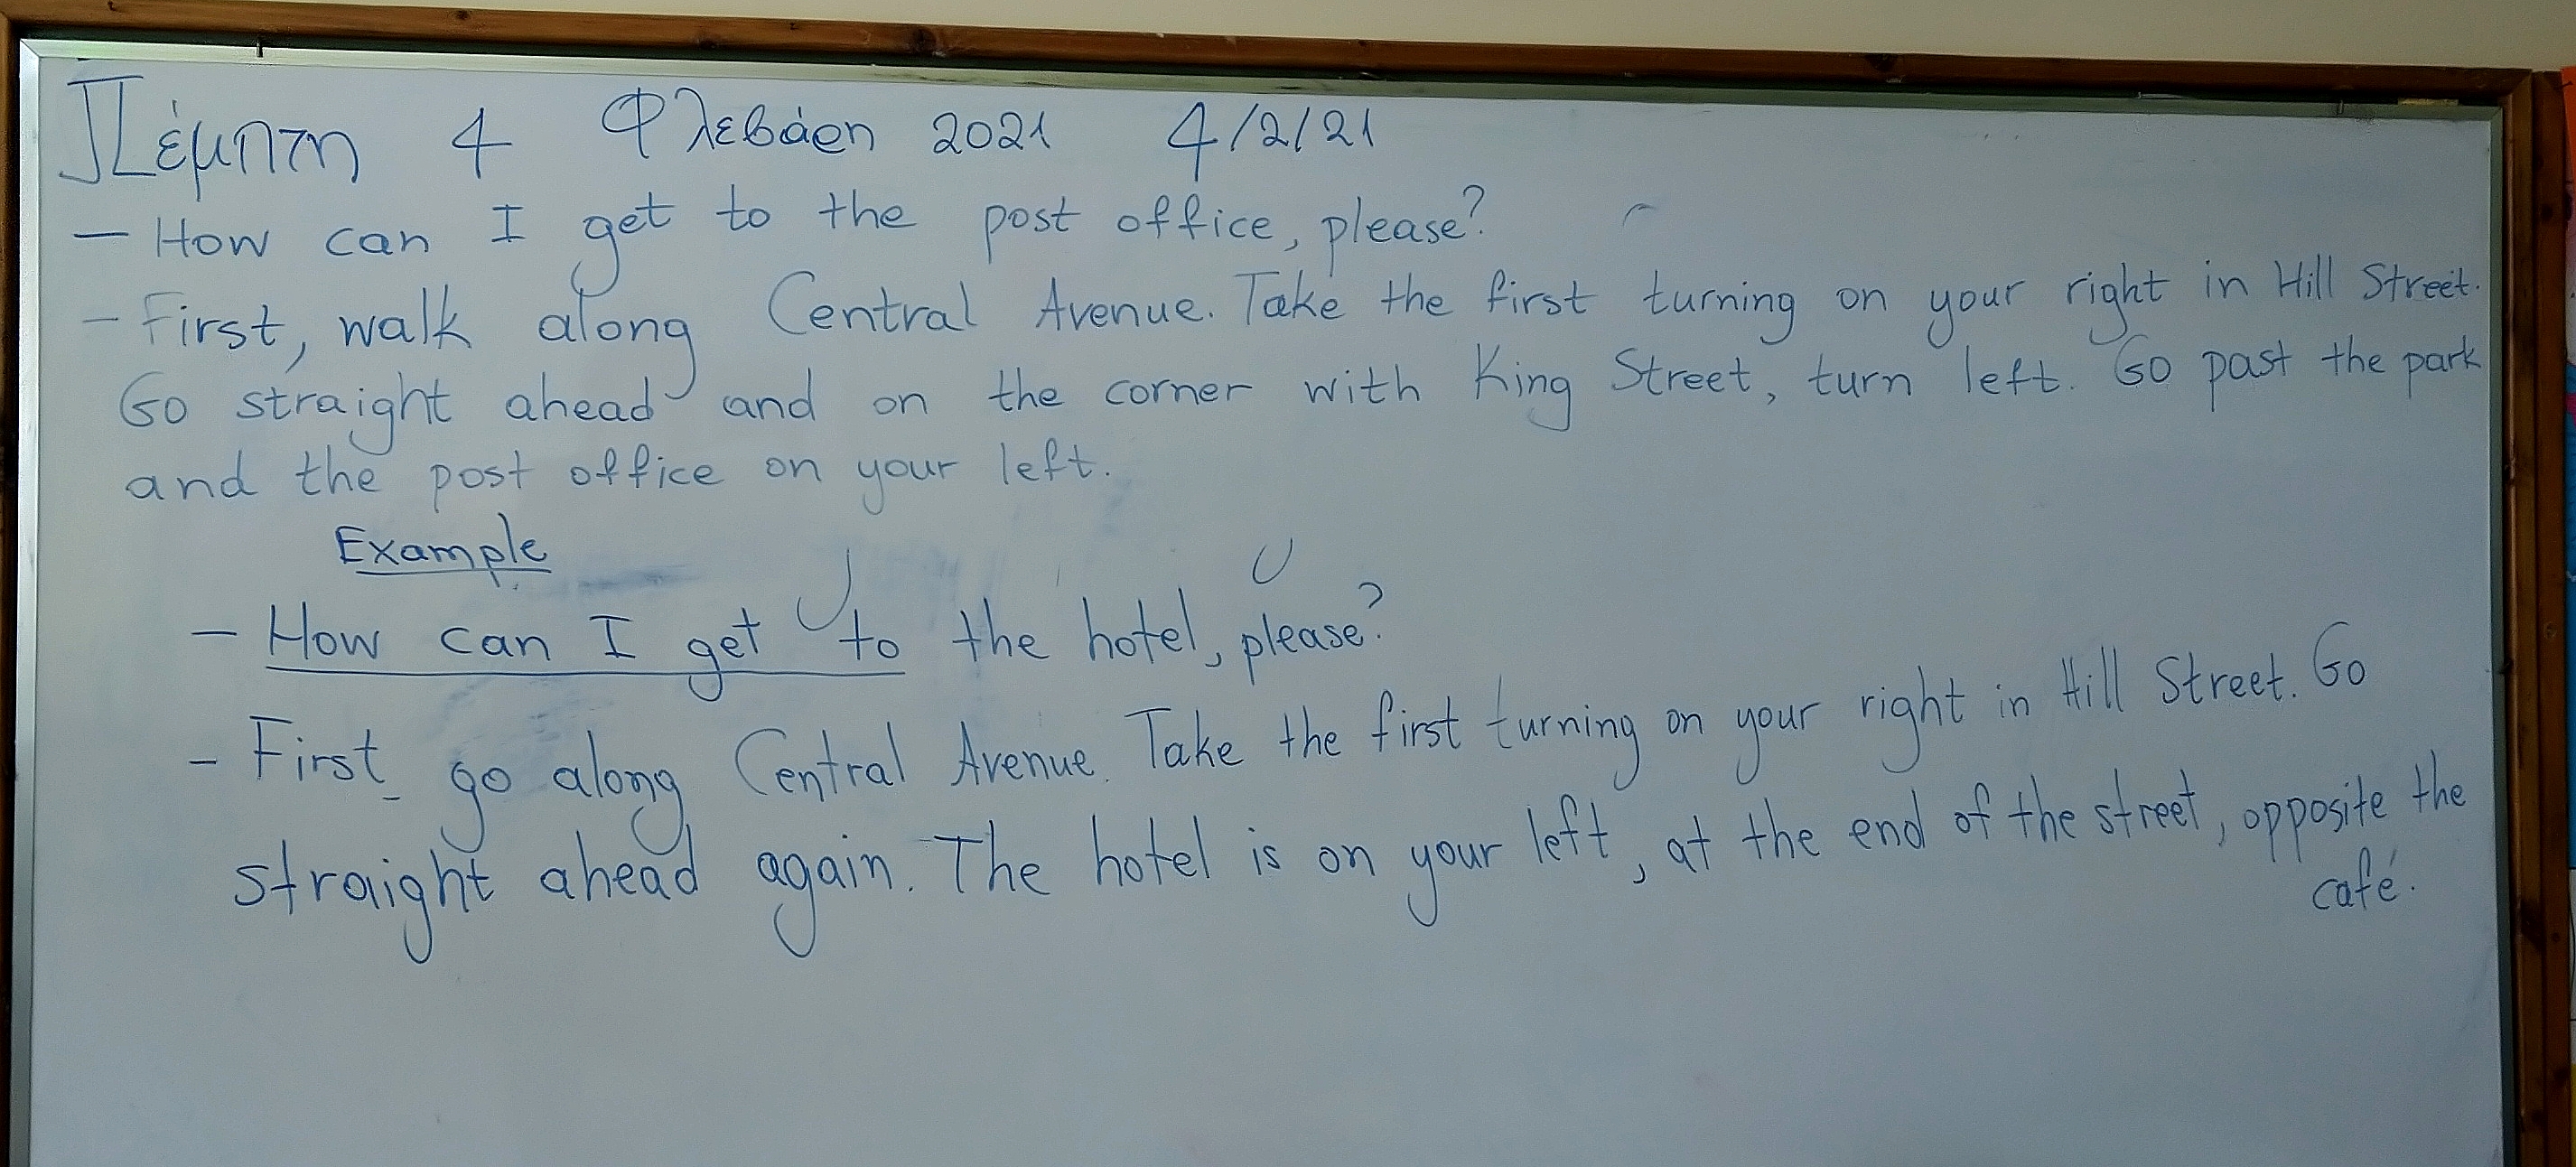 Πέμπτη 4 Φλεβάρη 2021 4/2/21
- How can I get to the post office, please?
- First, walk along Central Avenue. Take the first turning on your right in Hill Street.
Go straight ahead and on the corner with King Street, turn left. Go past the park
and the post office on your left.
Example
- How can I get to the hotel, please?
- First go along Central Avenue. Take the first turning on your right in Hill Street. Go
straight ahead again. The hotel is on your left, at the end of the street, opposite the
café.